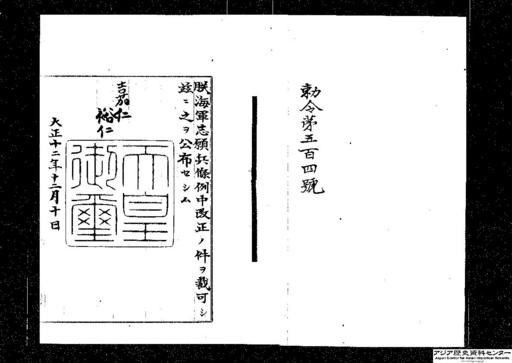 勅令第五百四號
朕海軍志願兵條例中改正ノ件ヲ裁可シ
玆ニ之ヲ公布セシム
嘉仁
裕仁
天皇
御璽
大正十二年十二月十日
アジア歴史資料センター
Japan Center for Asian Historical Records